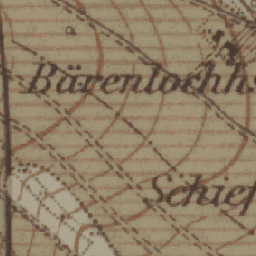 Bärenlochhs
Schief